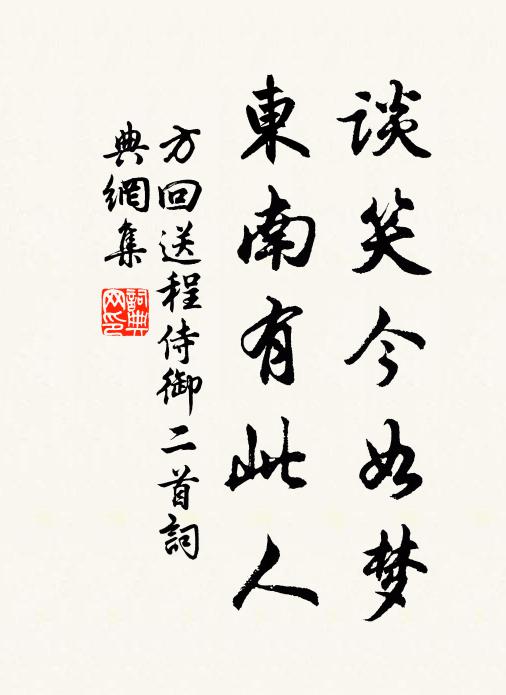 谈笑今如梦
東南有此人
方回送程侍御二首詞
典網集
詞典
网印